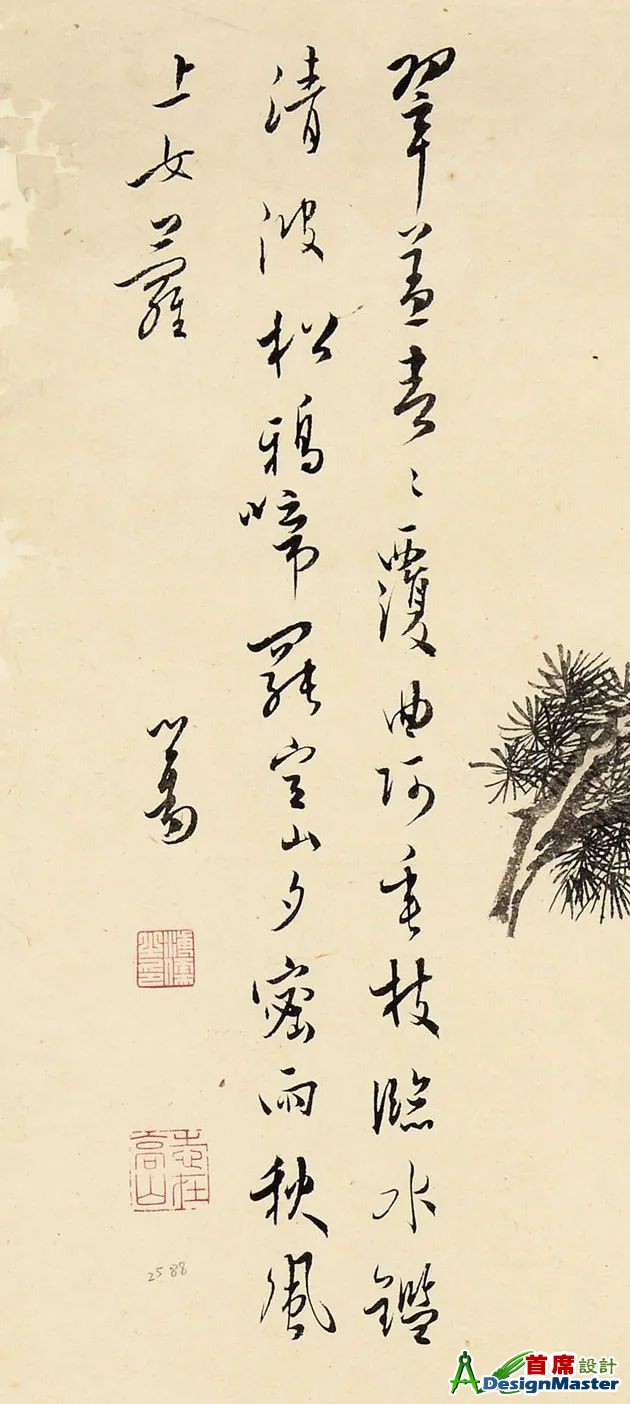 翠蓋青々覆曲阿垂枝臨水鑑
清波松鴉啼罷空山夕密雨秋風
上女蘿
心畬
溥儒之印
志在高山
2588
首席設計
DesignMaster